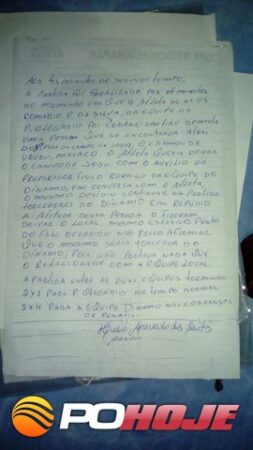 Aos 43 minutos do segundo tempo,
A partida foi paralizada por 02 minutos
no momento em que o Atleta de nº 03
Romário P. da Silva, da equipe de
P. Olegário foi cobrar um tiro
uma pessoa que se encontrava atrás
do campo de jogo, o chamou de
urubu, macaco. O Atleta queria deixar
o campo de jogo. Com o auxilio do
preparador físico Rodrigo da equipe do
Dínamo, em conversa com o Atleta,
o mesmo decidiu continuar na partida
torcedores do Dínamo em repudio
a Atitude desta pessoa o fizeram
deixar o local, mesmo estando perto
do fato ocorrido não posso afirmar
que o mesmo seria torcedor do
Dínamo, pois não portava nada que
o relacionasse com a equipe local.
A partida entre as duas equipes terminou
2x1 para P. Olegário no tempo normal
5x4 para a equipe Dínamo nas cobranças
de penalti
Aparecido dos Santos
POHOJE